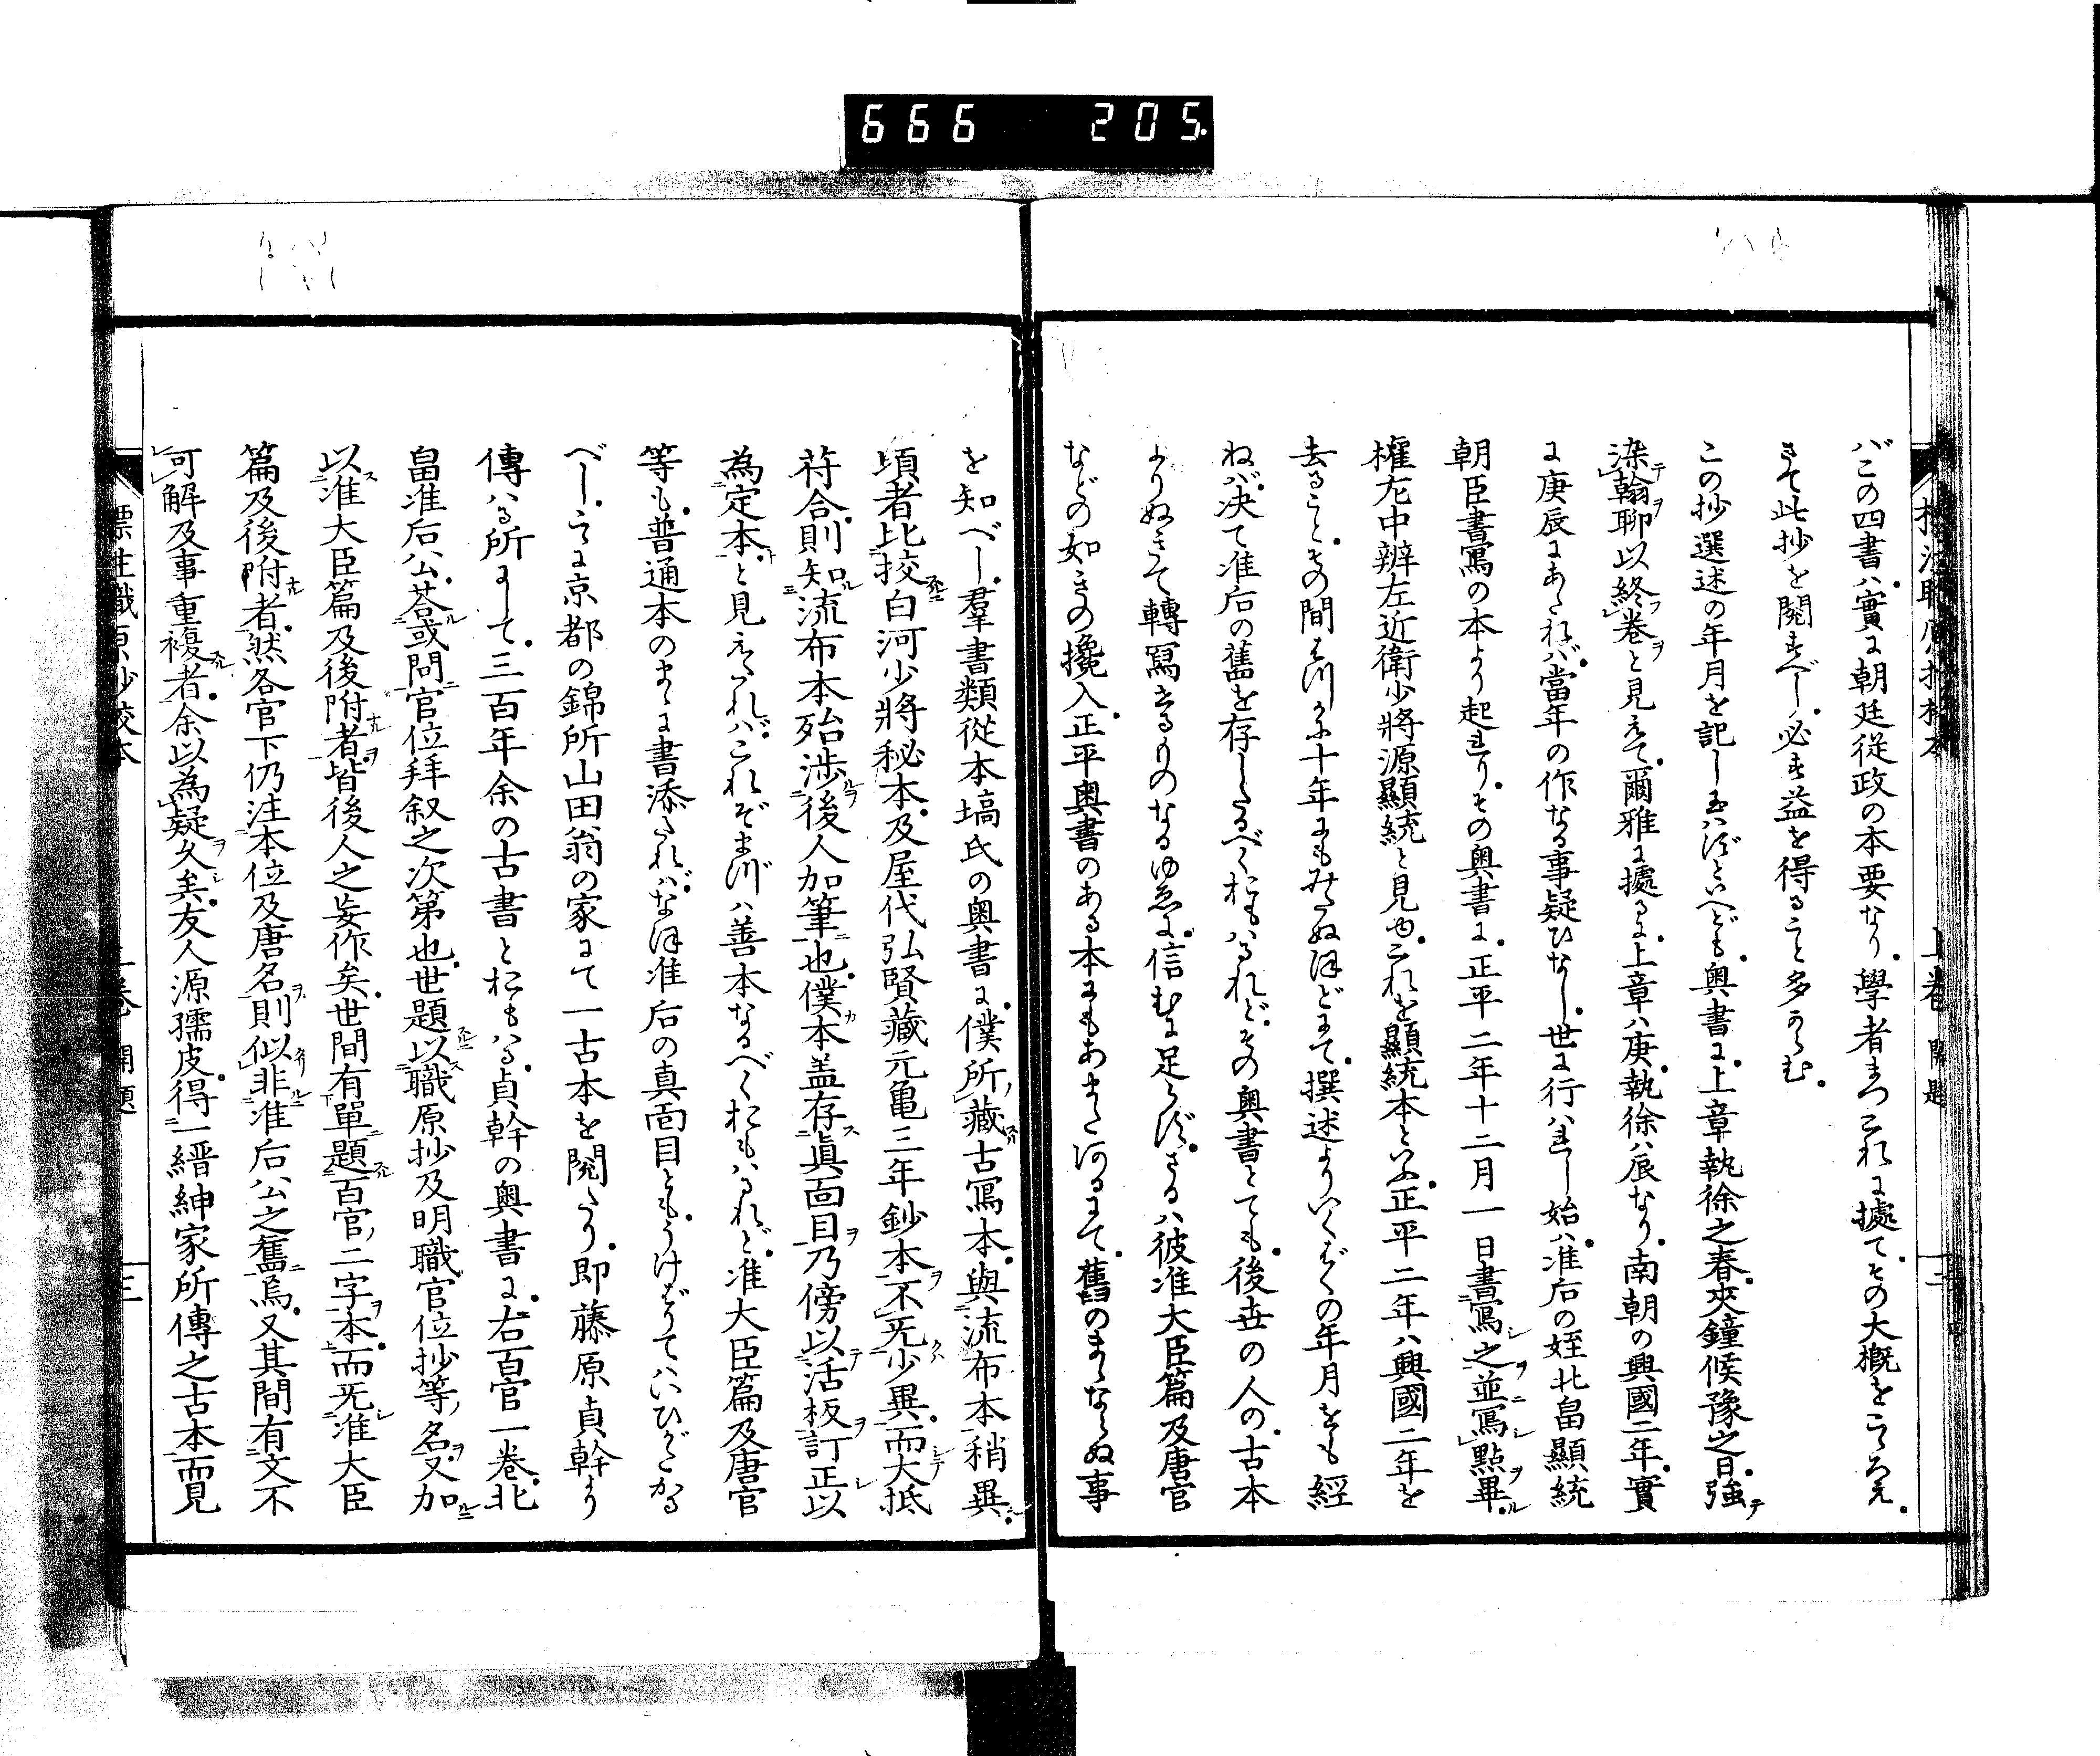 666 205.
バこの四書ハ實に朝廷従政の本要なり學者まつこれに據てその大概をこゝろえ
さて此抄を閲すべし必す益を得ること多からむ
この抄選述の年月を記しえはずといへども奥書に上章執徐之春夾鐘候豫之日強テ
染テ翰ヲ聊以終フ巻ヲと見えて爾雅に據るに上章ハ庚執徐ハ辰なり南朝の興國二年實
に庚辰にあたれバ當年の作なる事疑ひなし世に行ハれし始ハ准后の姪北畠顯統
朝臣書寫の本より起れりその奥書に正平二年十二月一日書寫シ之ヲ並ニ寫シ點ヲ畢ル
權左中辨左近衛少將源顯統と見ゆこれを顯統本といふ正平二年ハ興國二年を
去ることその間わづかに十年にもみたぬほどにて撰述よりいくばくの年月をも經
ねバ决て准后の舊を存したるべくおもハるれどその奥書とても後世の人の古本
よりぬきて轉寫せるものなるゆゑに信むに足らずさるハ彼准大臣篇及唐官
などの如きの攙入正平奥書のある本にもあまたあるにて舊のまゝならぬ事
上巻 開題 二
を知べし羣書類從本塙氏の奥書に僕所藏古寫本與流布本稍異
頃者比挍白河少將秘本及屋代弘賢藏元亀三年鈔本不无少異而大抵
符合則知流布本殆渉後人加筆也僕本盖存眞面目乃傍以活板訂正以
為定本と見えたれバこれぞまづハ善本なるべくおもハるれど准大臣篇及唐官
等も普通本のまゝに書添たれバなほ准后の真面目ともうけばりてハいひがたかる
べしこゝに京都の錦所山田翁の家にて一古本を閲たり即藤原貞幹より
傳ハる所にして三百年余の古書とおもハる貞幹の奥書に右百官一巻北
畠准后公荅或問官位拜叙之次第也世題以職原抄及明職官位抄等名又加
以准大臣篇及後附者皆後人之妄作矣世間有單題百官二字本而无准大臣
篇及後附者然各官下仍注本位及唐名則似非准后公之舊焉又其間有文不
可解及事重複者余以為疑久矣友人源孺皮得一縉紳家所傳之古本而見
標注職原抄校本 上巻 開題 三